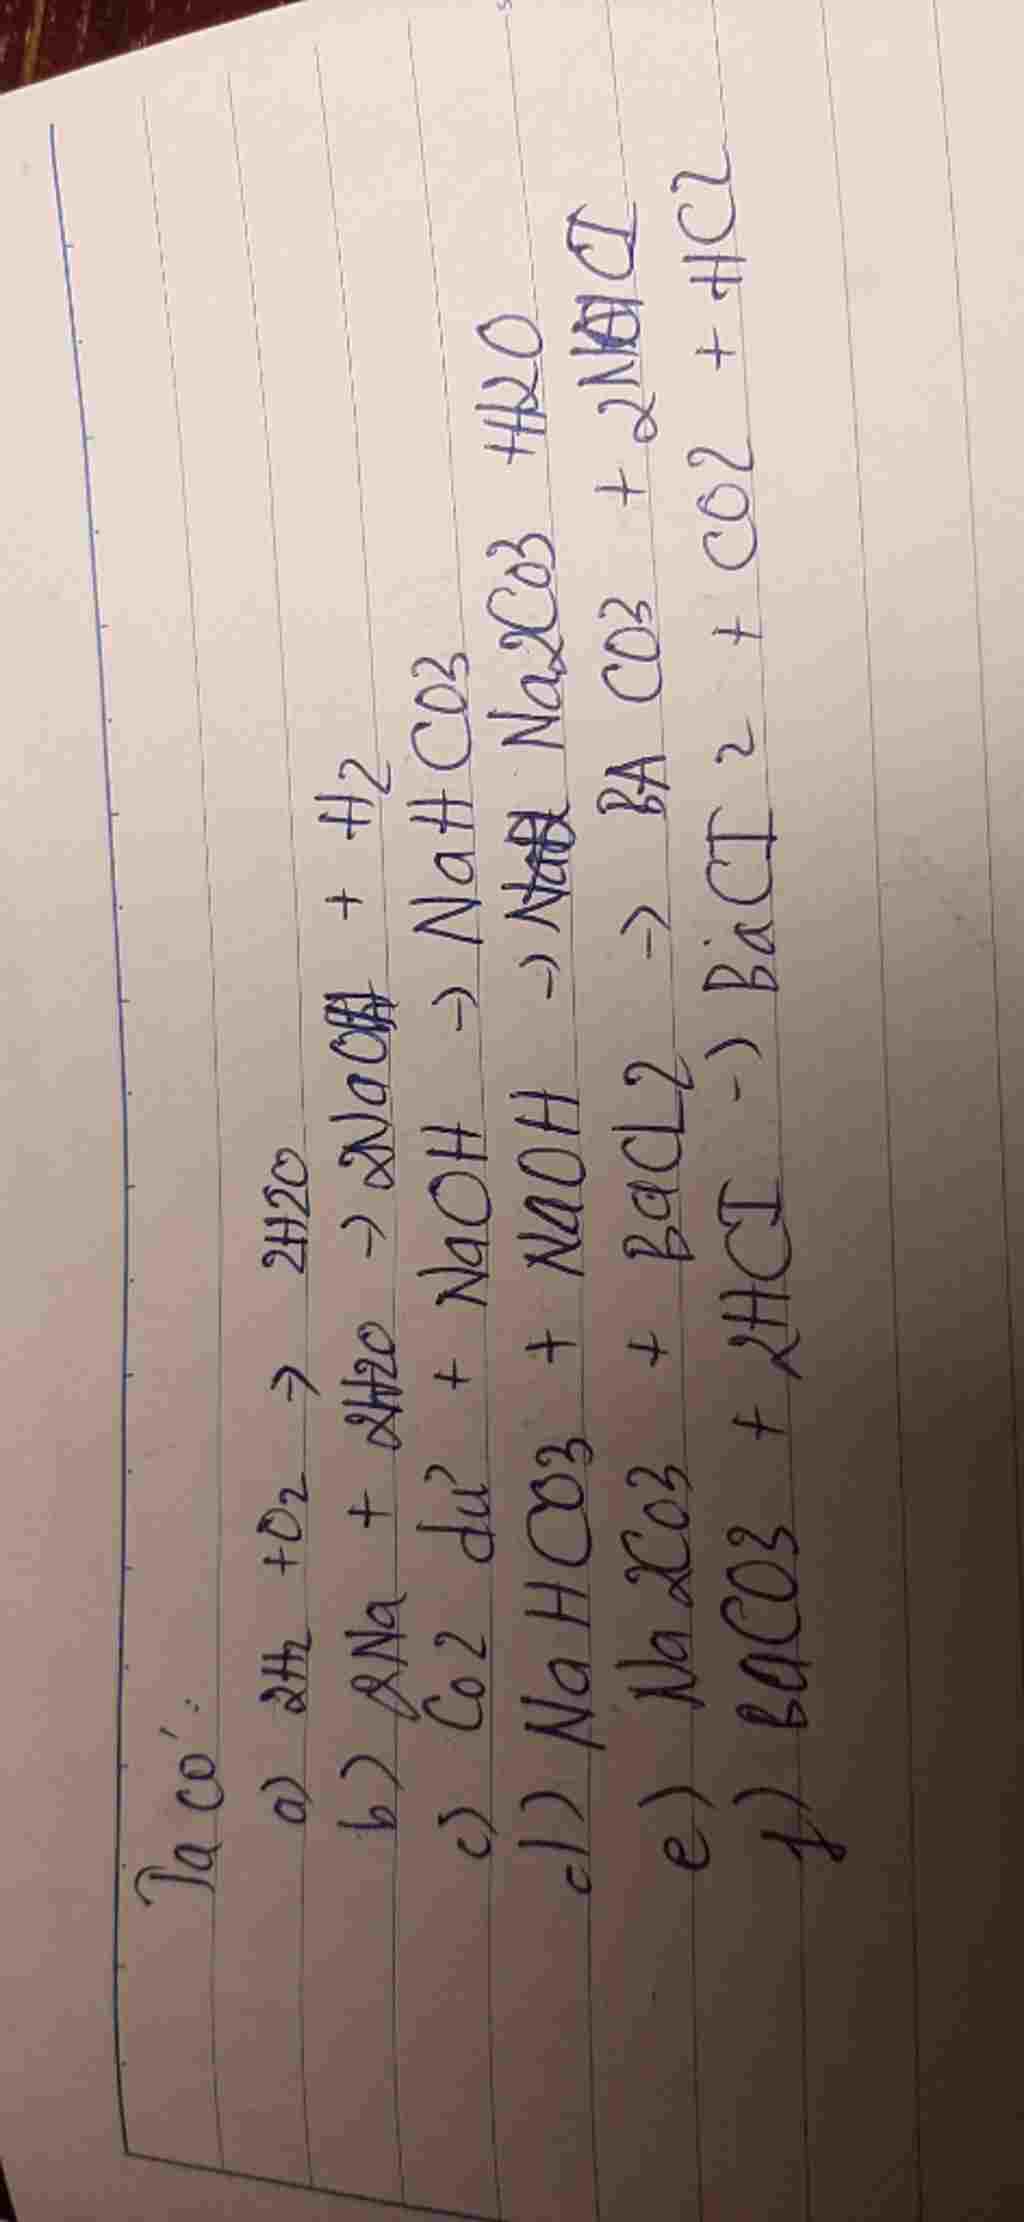 Ta có:
a) 2H2 + O2 → 2H2O
b) 2Na + 2H2O → 2NaOH + H2
c) CO2 dư + NaOH → NaHCO3
d) NaHCO3 + NaOH → Na2CO3 H2O
e) Na2CO3 + BaCL2 → BA CO3 + 2NACI
f) BaCO3 + 2HCI → BaCI2 + CO2 + HC2